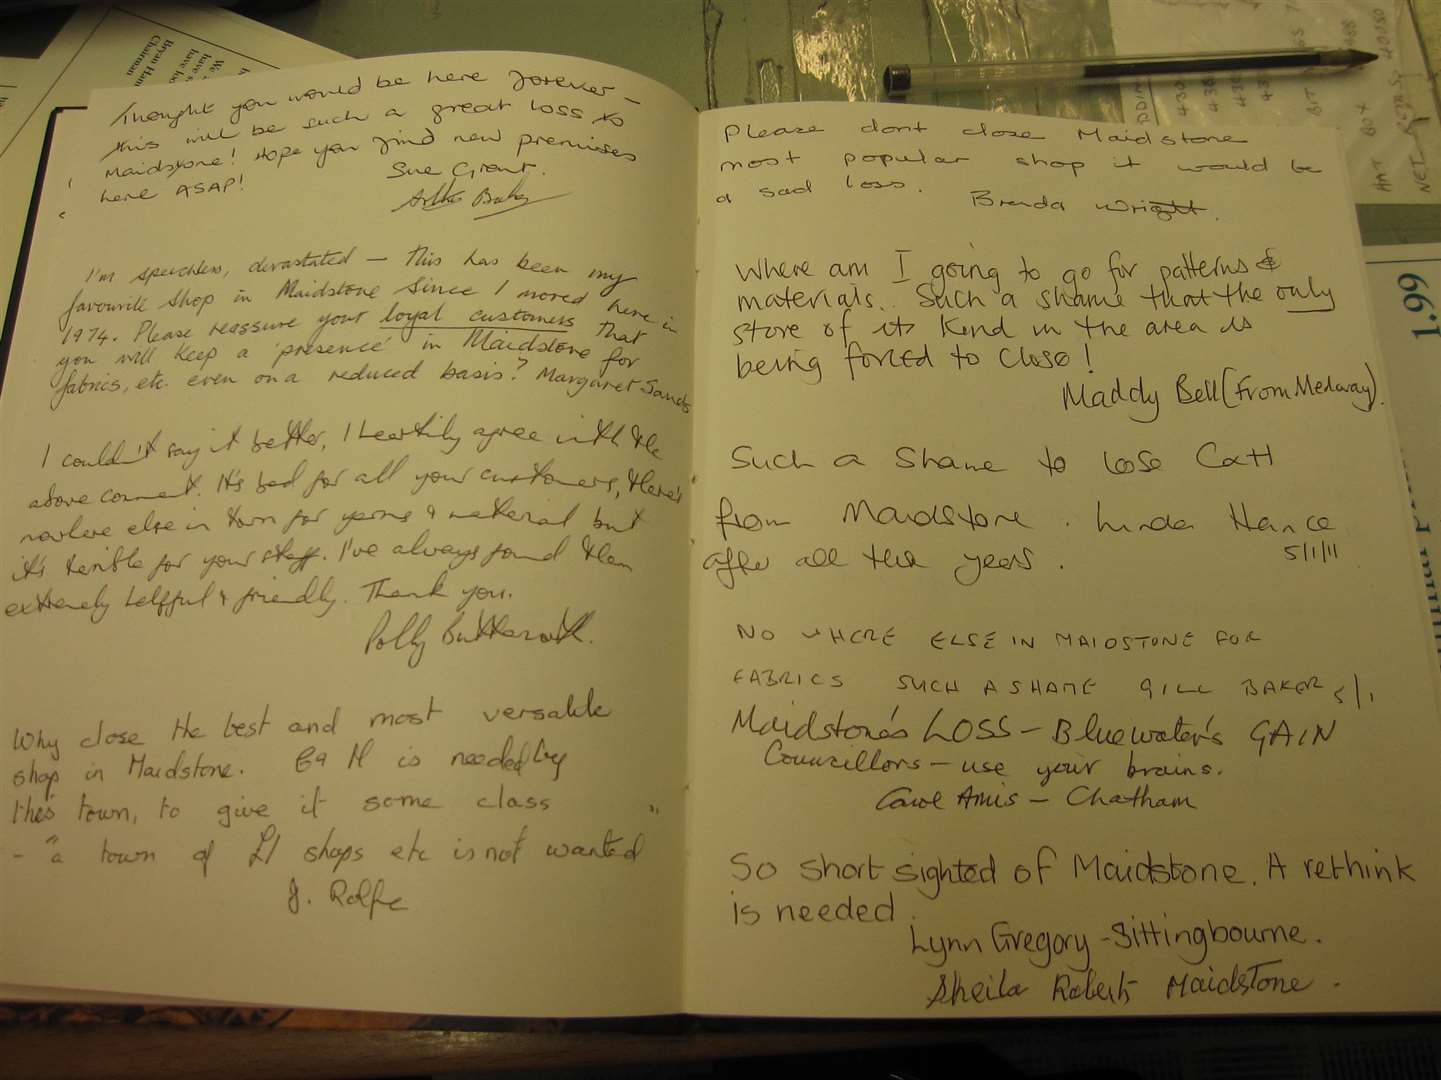 Thought you would be here forever –
this will be such a great loss to
Maidstone! Hope you find new premises
here ASAP!
Sue Grant.
I'm speechless, devastated – this has been my
favourite shop in Maidstone since I moved here in
1974. Please reassure your loyal customers that
you will keep a 'presence' in Maidstone for
fabrics, etc. even on a reduced basis? Margaret Sands
I couldn't say it better, I heartily agree with the
above comment. It's bad for all your customers, there's
nowhere else in town for yarns & material but
it's terrible for your staff. I've always found them
extremely helpful & friendly. Thank you.
Polly Butterworth.
Why close the best and most versatile
shop in Maidstone. C&H is needed by
this town, to give it some class
- "a town of £1 shops etc is not wanted"
J. Rolfe
Please dont close Maidstone
most popular shop it would be
a sad loss.
Brenda Wright.
Where am I going to go for patterns &
materials.. Such a shame that the only
store of its kind in the area is
being forced to close!
Maddy Bell (from Medway).
Such a shame to lose C&H
from Maidstone. Linda Hance
5/1/11
after all these years.
NO WHERE ELSE IN MAIDSTONE FOR
FABRICS SUCH A SHAME GILL BAKER 5/1
Maidstone's LOSS – Bluewater's GAIN
Councillors – use your brains.
Carol Amis – Chatham
So short sighted of Maidstone. A rethink
is needed.
Lynn Gregory - Sittingbourne.
Sheila Roberts Maidstone.
Bryan Ham
Chairman
1.99